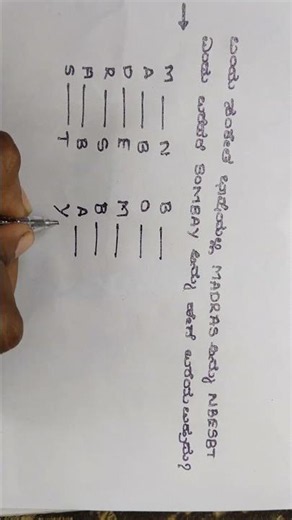 ಒಂದು ಸಂಕೇತ ಭಾಷೆಯಲ್ಲಿ MADRAS ಅನ್ನು NBESBT
ಎಂದು ಬರೆದರೆ BOMBAY ಅನ್ನು ಹೇಗೆ ಬರೆಯಬಹುದು?
M — N B —
A — B O —
D — E M —
R — S B —
A — B A —
S — T Y —